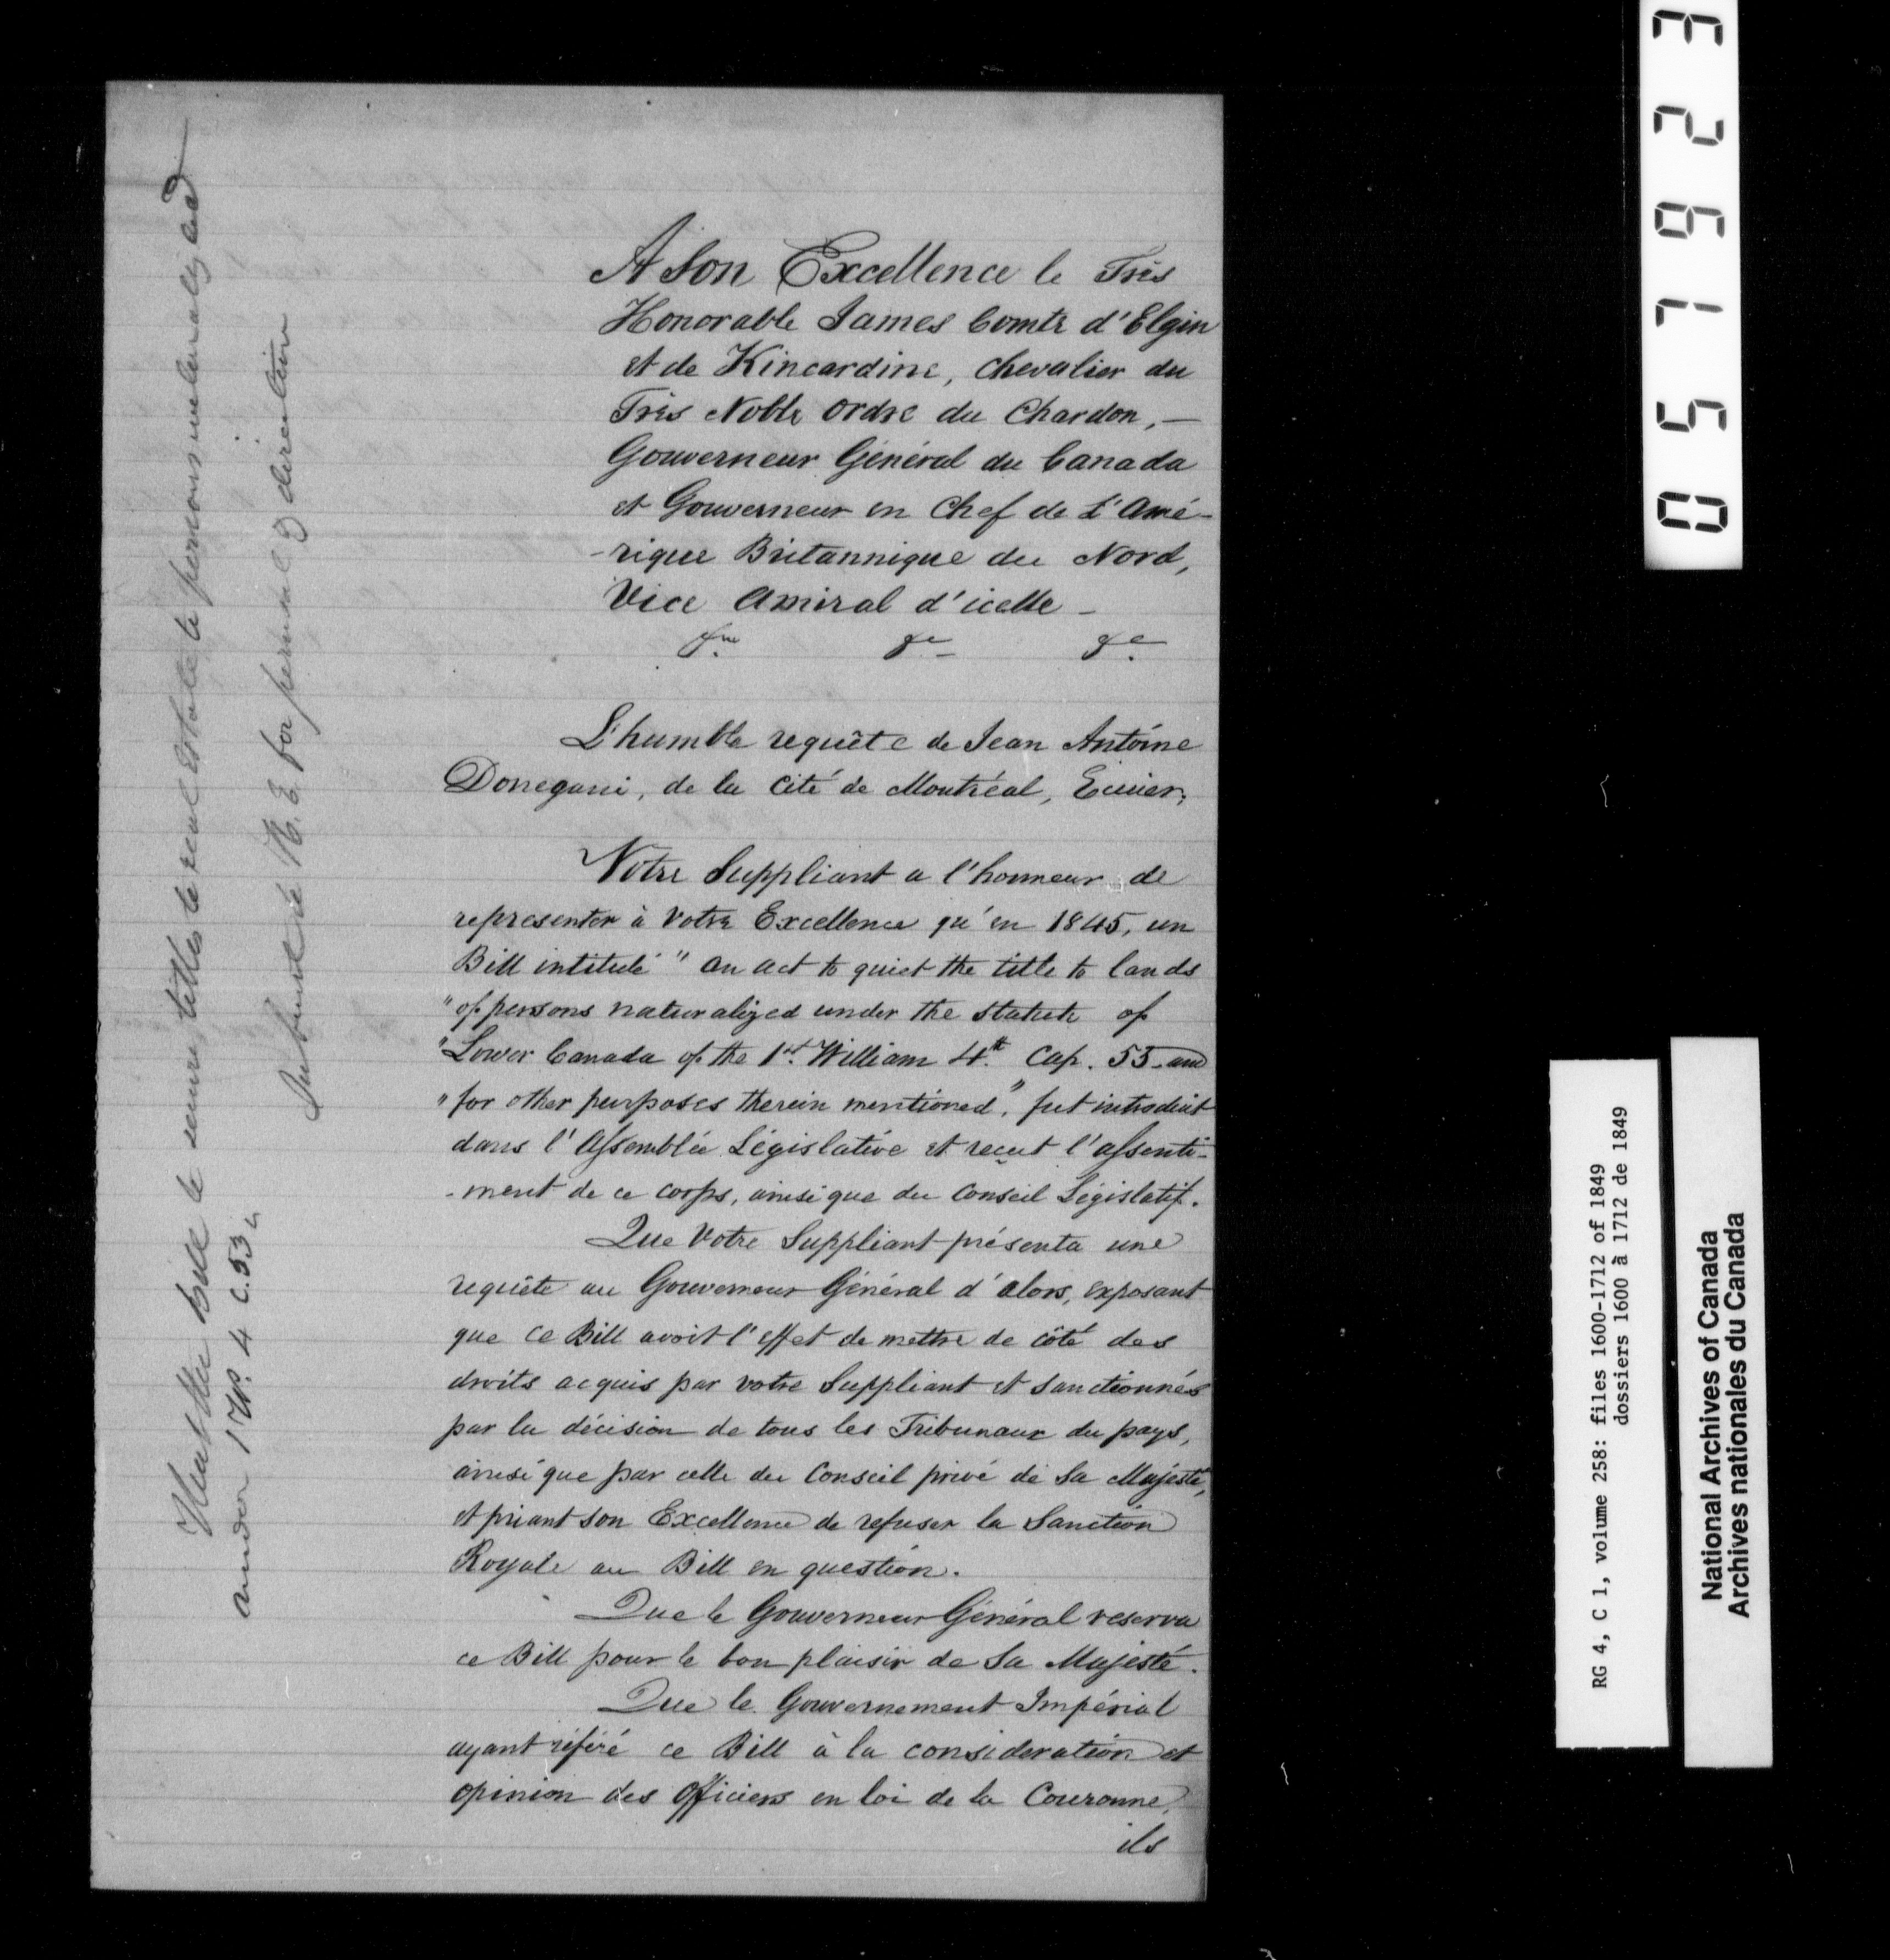 A Son Excellence le Très
Honorable James Comte d'Elgin
et de Kincardine, Chevalier du
Très Noble ordre du Chardon, —
Gouverneur Général du Canada
et Gouverneur en Chef de L'Amé-
-rique Britannique du Nord,
Vice Amiral d'icelle —
L'humble requête de Jean Antoine
Donegani, de la Cité de Montréal, Ecuier,
Votre Suppliant a l'honneur de
representer à Votre Excellence qu'en 1845, un
Bill intitulé "An act to quiet the title to lands
"of persons naturalized under the Statute of
"Lower Canada of the 1st. William 4th. Cap. 53 and
"for other purposes therein mentioned", fut introduit
dans l'Assemblée Législative et reçut l'assenti-
-ment de ce corps, ainsi que du Conseil Législatif.
Que Votre Suppliant présenta une
requête au Gouverneur Général d'alors, exposant
que ce Bill avoit l'effet de mettre de côté des
droits acquis par votre Suppliant et sanctionnés
par la décision de tous les Tribunaux du pays,
ainsi que par celle du Conseil privé de Sa Majesté,
et priant son Excellence de refuser la Sanction
Royale au Bill en question.
Que le Gouverneur Général reserva
ce Bill pour le bon plaisir de Sa Majesté.
Que le Gouvernement Impérial
ayant référé ce Bill à la consideration et
opinion des Officiers en loi de la Couronne,
ils
that the bill to secure titles to real estate to persons naturalized
under 1 W. 4 c. 53
Submitted to H. E. for perusal & direction
057923
RG 4, C 1, volume 258: files 1600-1712 of 1849
dossiers 1600 à 1712 de 1849
National Archives of Canada
Archives nationales du Canada